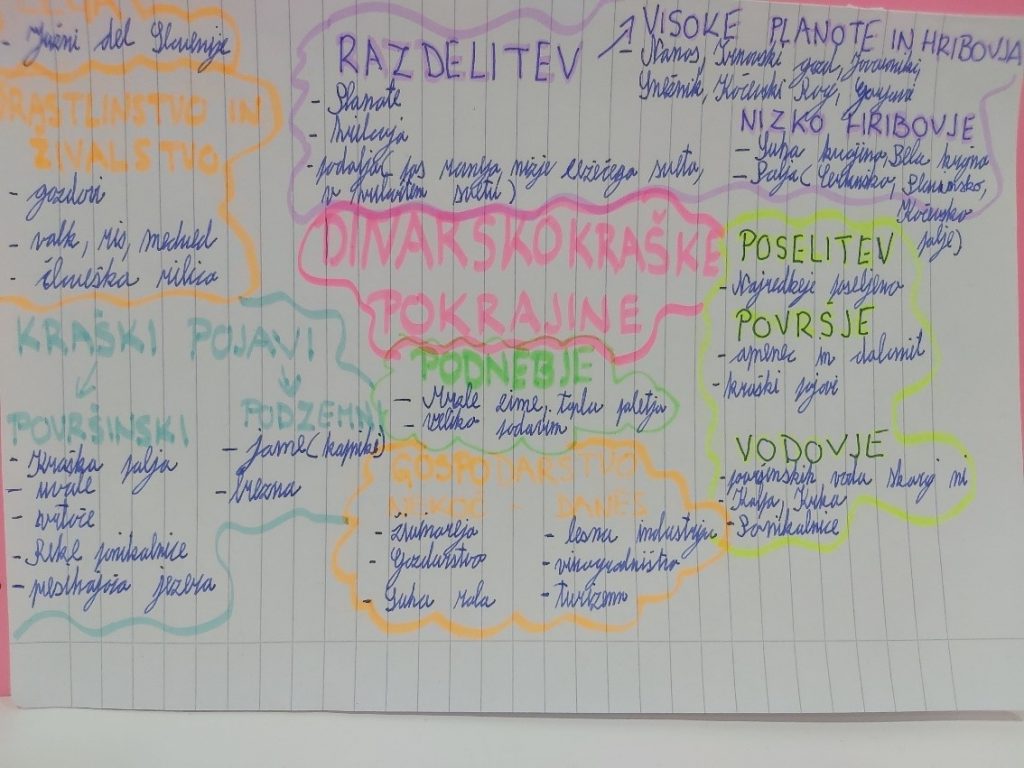 - Južni del Slovenije
RASTLINSTVO IN
ŽIVALSTVO
- gozdovi
- volk, ris, medved
- človeška ribica
RAZDELITEV
- Planote
- hribovja
- podolja (pas manjša, nižje ležečega sveta,
v hribovitem svetu)
VISOKE PLANOTE IN HRIBOVJA
- Nanos, Trnovski gozd, Javorniki,
Snežnik, Kočevski Rog, Gorjanci
NIZKO HRIBOVJE
- Suha krajina, Bela krajina
- Polja (Cerkniško, Planinsko,
Kočevsko
polje)
DINARSKOKRAŠKE
POKRAJINE
POSELITEV
- Najredkeje poseljeno
POVRŠJE
- apnenec in dolomit
- kraški pojavi
VODOVJE
- površinskih voda skoraj ni
- Kolpa, Krka
- Ponikalnice
PODNEBJE
- Mrzle zime, topla poletja
- Veliko padavin
KRAŠKI POJAVI
POVRŠINSKI
- Kraška polja
- uvale
- vrtače
- Reke ponikalnice
- presihajoča jezera
PODZEMNI
- jame (kapniki)
- brezna
GOSPODARSTVO
NEKOČ - DANES
- živinoreja
- Gozdarstvo
- Suha roba
- lesna industrija
- vinogradništvo
- turizem